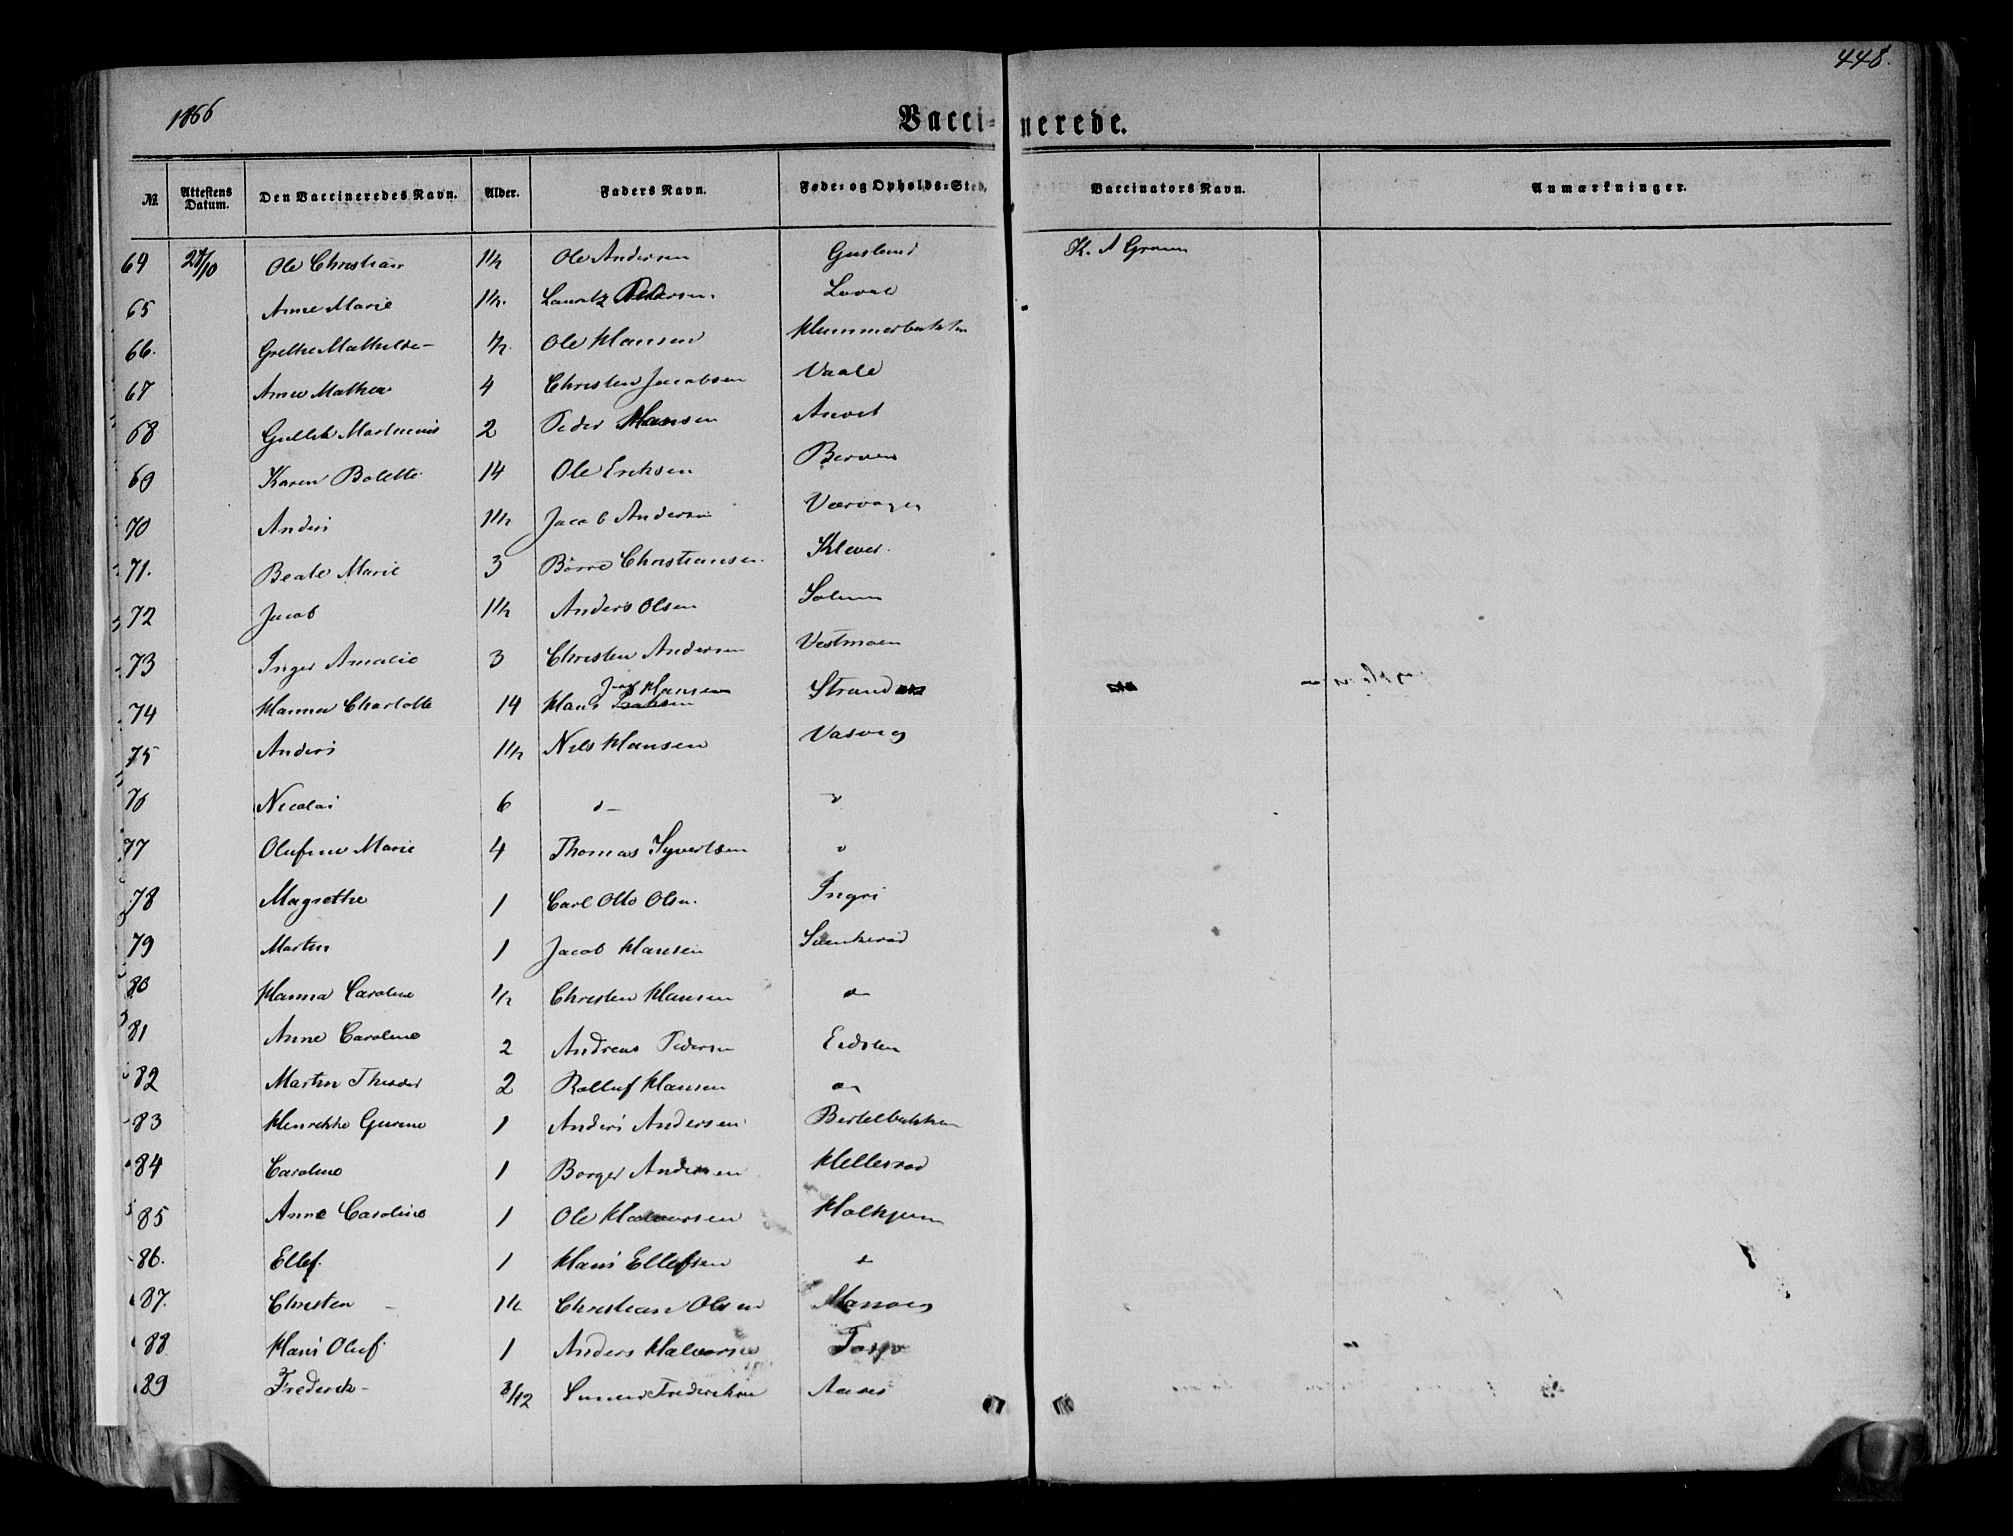 448.
1866
Vacci- nerede.
№ Attestens Datum. Den Vaccineredes Navn. Alder. Faders Navn. Føde- og Opholds-Sted. Vaccinators Navn. Anmærkninger.
64 24/10 Ole Christian 1 1/2 Ole Andersen Guslund K. A
65 Anne Marie 1 1/2. Lauritz Pedersen.
66. Grethe Mathilde- 1/2. Ole Hansen
67 Anne Mathea 4 Christen Jacobsen Vaale
68 2 Peder Hansen
69 Karen Bolette 14 Ole Eriksen
70 Anders 1 1/2 Jacob Andersen
71. Beate Marie 3 Børre Christiansen. Klever.
72 Jacob 1 1/2 Anders Olsen Solum
73 Inger Amalie 3 Christen Andersen Vestmoen
74 Hanna Charlotte 14 Hans Hansen Strand
75 Anders 1 1/2 Nils Hansen Vasveg
76 Nicolai 6 " "
77 Olufine Marie 4 Thomas Syvertsen "
78 Magrethe 1 Carl Otto Olsen. Ingri
79 Martin 1 Jacob Hansen
80 Hanna Caroline 1/2 Christen Hansen "
81 Anne Caroline 2 Andreas Pedersen Eidsten
82 Martin Theodor 2 Rolluf Hansen "
83 Henrikke Gurine 1 Anders Andersen Bertelbakken
84 Caroline 1 Borger Andersen Hellerød
85 Anne Caroline 1 Ole Halvorsen
86. Ellef. 1 Hans Ellefsen "
87. Christen 1 1/2 Christian Olsen
88 Hans Oluf 1 Anders Halvorsen
89 Frederik- 8/12 Frederiksen